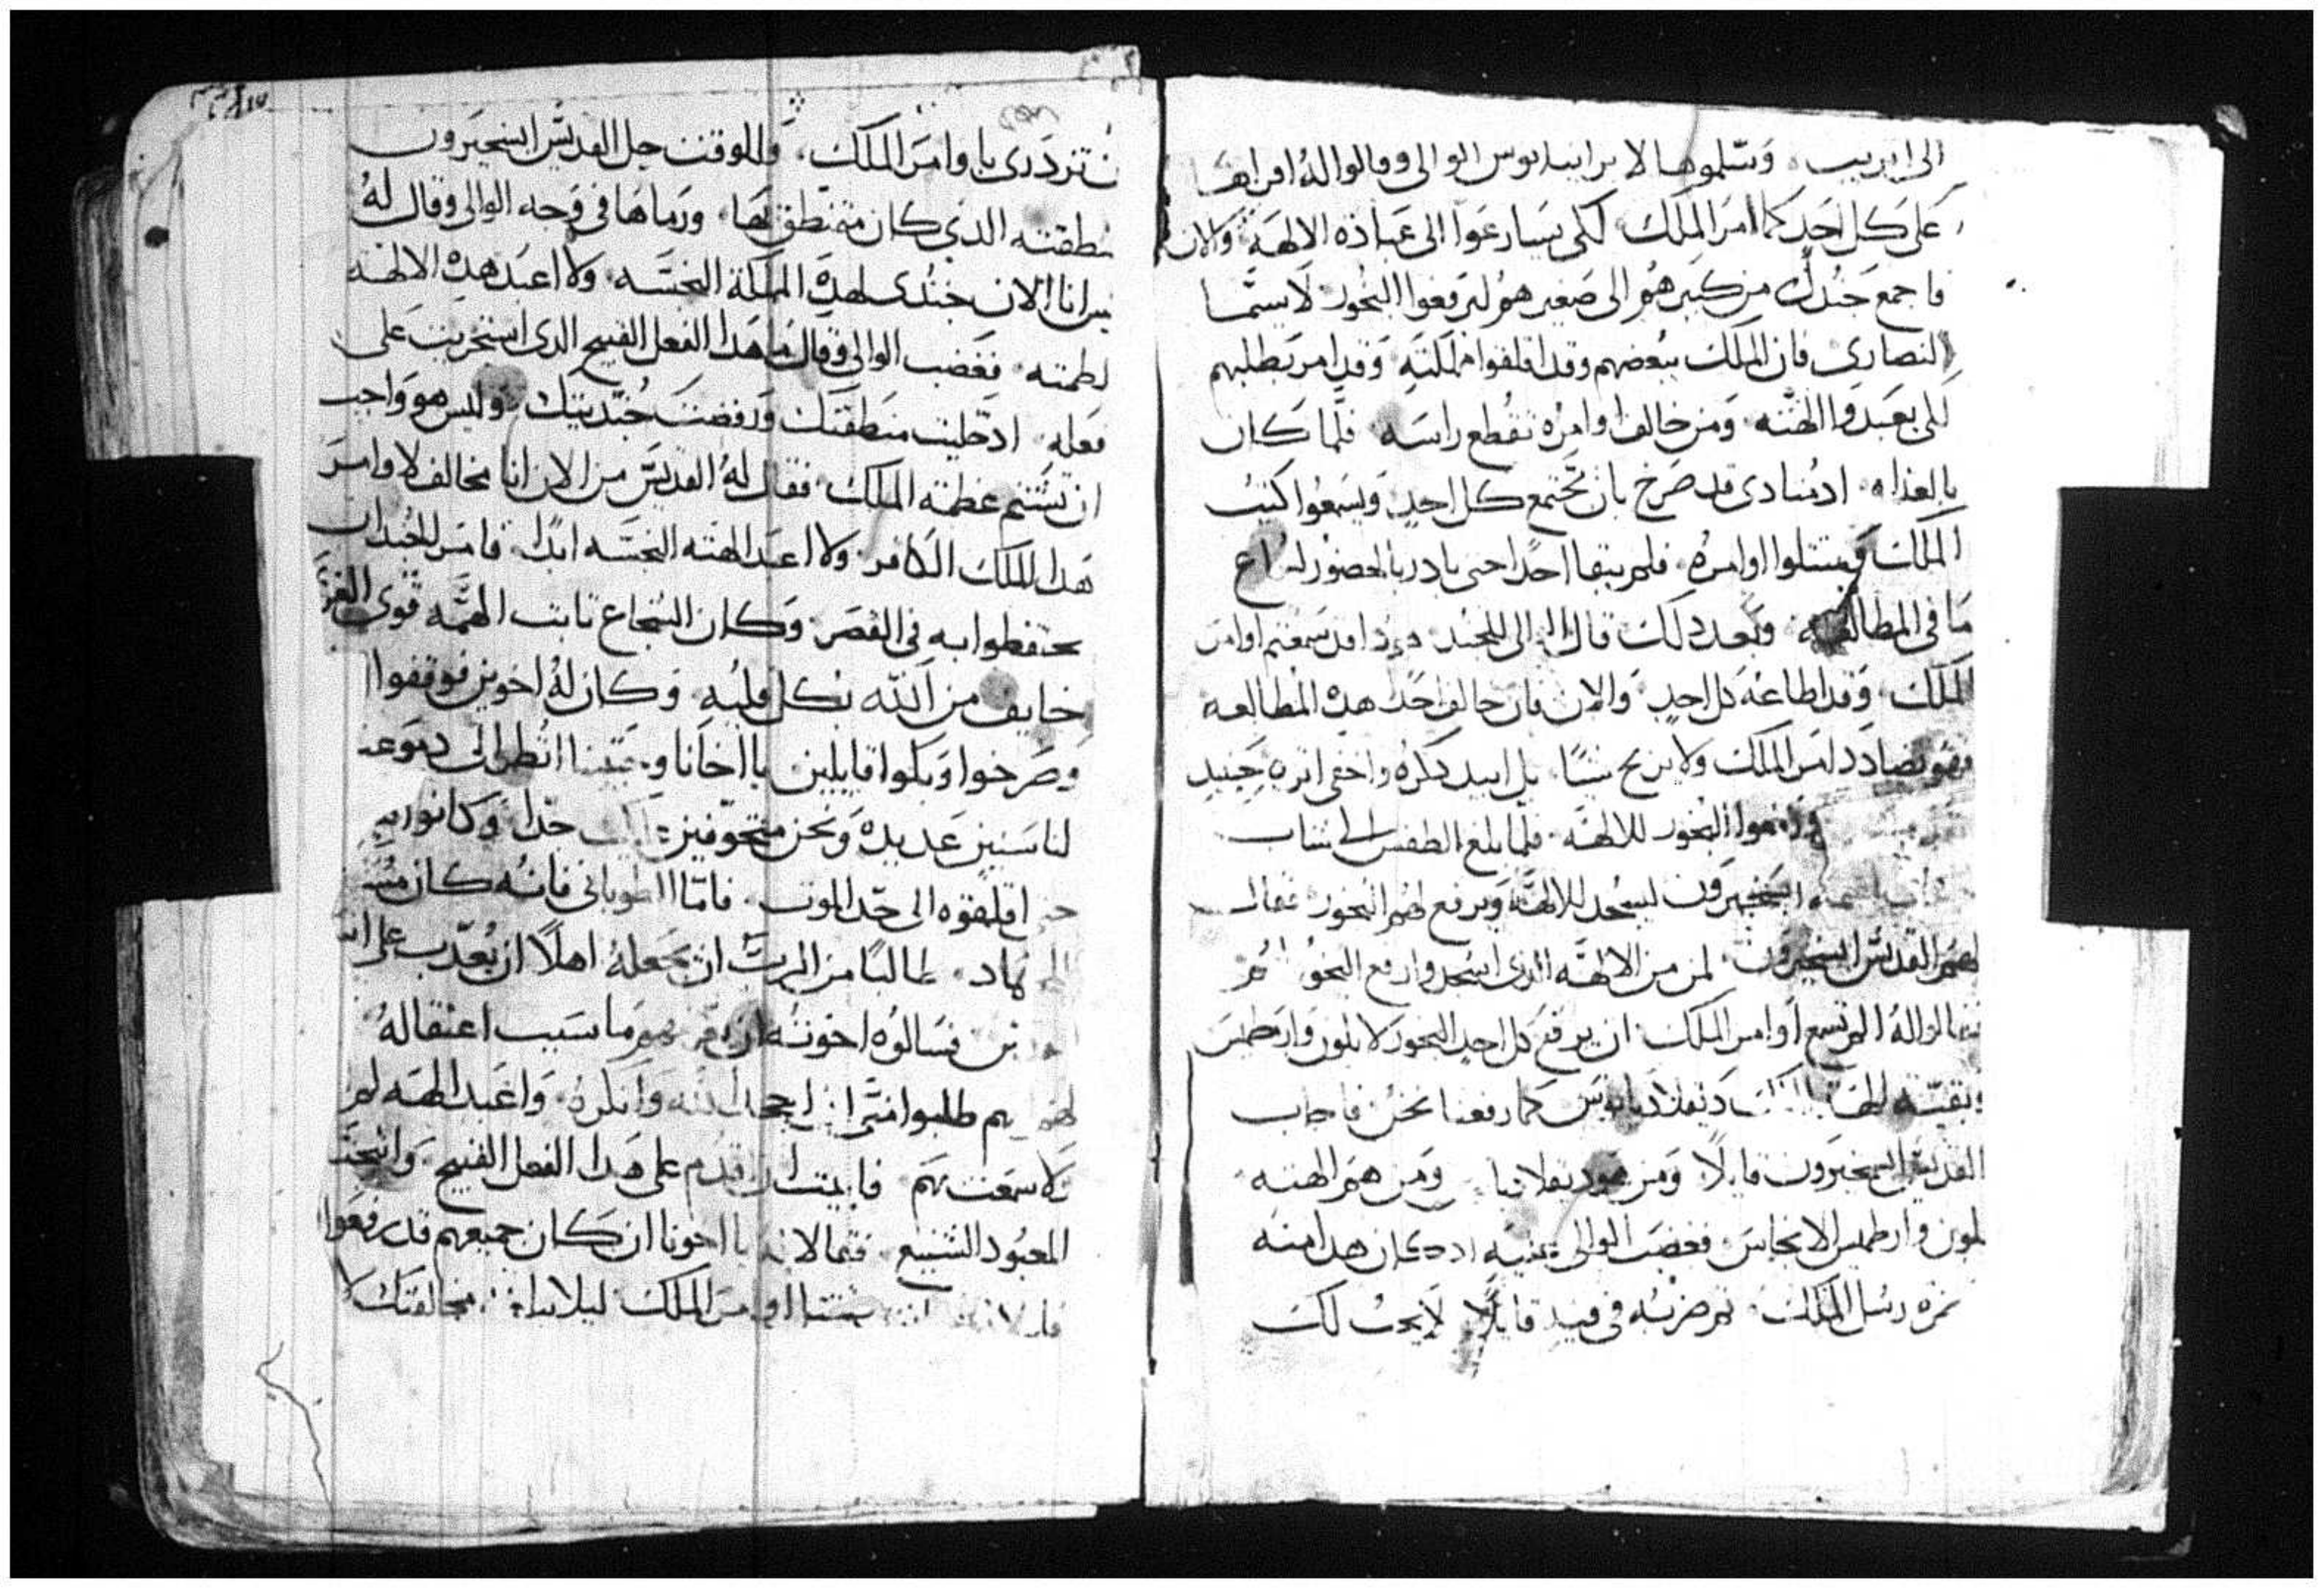 الى اتريب وسلموها لابرانيانوس الوالى وقالوا له اقراها
على كل احد كما امر الملك لكى يسارعوا الى عبادة الالهة والان
فاجمع جندك من كبيرهم الى صغيرهم ليرفعوا البخور لاسيما
النصارى فان الملك يبغضهم وقد اقلقوا مملكته وقد امر بطلبهم
لكى يعبدوا الهته ومن خالف اوامره تقطع راسه فلما كان
بالغداه ادمنادى قد صرخ بان تجتمع كل احد ويسمعوا كتب
الملك ويمتثلوا اوامره فلم يبقا احدا حتى بادر بالحضور لسماع
ما فى المطالعه وبعد دلك قال الوالى للجند قد سمعتم اوامر
الملك وقد اطاعه كل احد والان فان خالف احد هده المطالعه
فهو يضادد امر الملك ولا يربح شيا بل ابيد دكره واخفى اتره حينيد
البخور للالهه فلما بلغ الطقس الى شاب
ابسخيرون ليسجد للالهه ويرفع لهم البخور فقال
لهم القديس ابسخيرون لمن من الالهه الدى اسجد وارفع البخور
فقالوا له الم تسمع اوامر الملك ان يرفع كل احد البخور لابلون وارطميس
وبقية الهة الملك دقلاديانوس كما رفعنا نحن فاجاب
القديس ابسخيرون قايلا ومن هو دقلاديا ومن هم الهته
لبون وارطميس الانجاس فغضب الوالى ادكان هدا منه
رسل الملك تم ضربه فى فيه قايلا لا يجب لك
ن تزدرى باوامر الملك وللوقت حل القديس ابسخيرون
منطقته الدى كان متمنطق بها ورماها فى وجه الوالى وقال له
ليس انا الان جندى لهده المملكة النجسه ولا اعبد هده الالهه
لطمته فغضب الوالى وقال ما هدا الفعل القبيح الدى استجريت على
فعله ادحليت منطقتك ورفضت جنديتك وليس هو واجب
ان تشتم عظمة الملك فقال له القديس من الان انا مخالف لاوامر
هدا الملك الكافر ولا اعبد الهته النجسه ابدا فامر الجند ان
يحتفظوا به فى القصر وكان الشجاع تابت الهمه قوى العز
خايف من الله بكل قلبه وكان له اخوين فوقفوا
وصرخوا وبكوا قايلين يا اخانا وحبيبنا انظر الى دموعنا
لنا سنين عديده ونحن متخوفين جدا وكانوا
اقلقوه الى حد الموت فاما الطوبانى فانه كان
طالبا من الرب ان يجعله اهلا ان يعدب على اسمه
فسالوه اخوته ان يعرفهم ما سبب اعتقاله
طلبوا منى ان اجحد الله وانكره واعبد الهه لم
لا سمعت بهم فابيت ان اقدم على هدا الفعل القبيح واسجد
المعبود الشنيع فقالا له يا اخونا ان كان جميعهم قد رفعوا
اوامر الملك ليلا مخالفتك لا